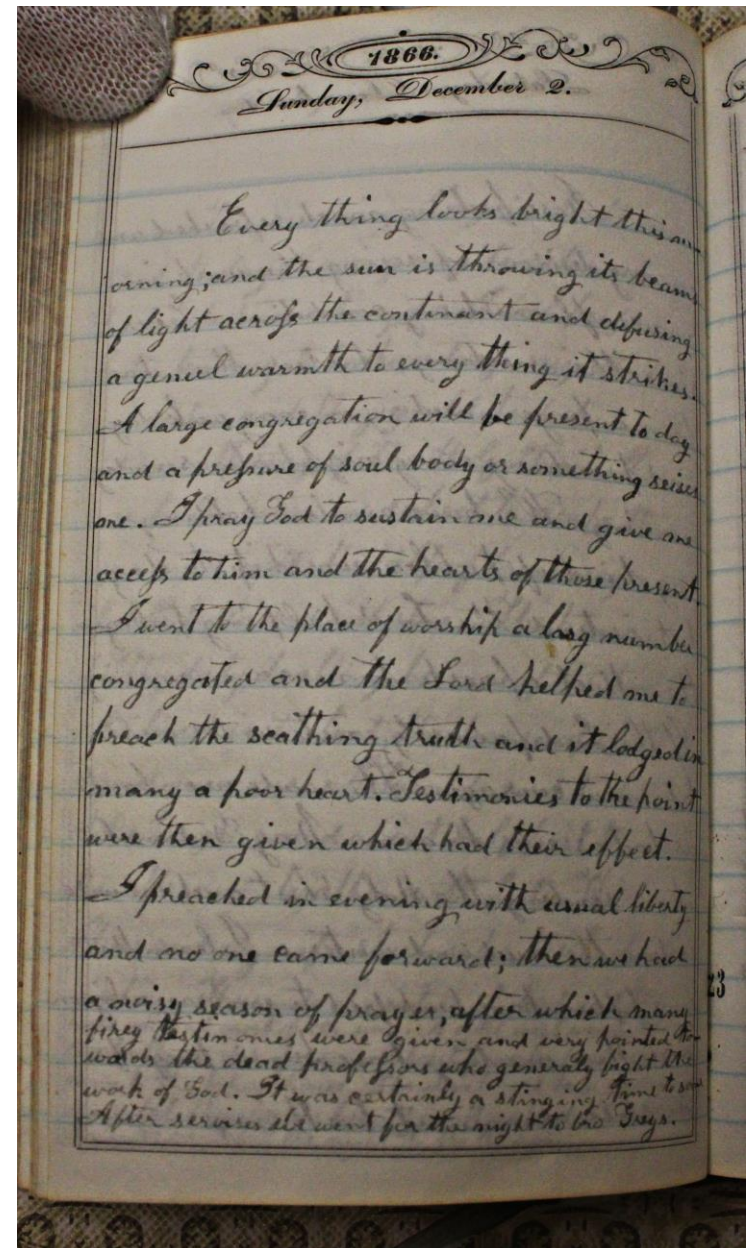 1866.
Sunday, December 2.
Every thing looks bright this m-
orning; and the sun is throwing its beams
of light across the continant and difusing
a genuel warmth to every thing it strikes.
A large congregation will be present to day
and a pressure of soul body or something seises
one. I pray God to sustain me and give me
access to him and the hearts of those present.
I went to the place of worship a larg number
congregated and the Lord helped me to
preach the scathing truth and it lodged in
many a poor heart. Testimonies to the point
were then given which had their effect.
I preached in evening with usual liberty
and no one came forward; then we had
a noisy season of prayer, after which many
firey testimonies were given and very pointed to-
wards the dead professors who generaly fight the
work of God. It was certainly a stinging time to
After servises we went for the night to bro Greys.
23